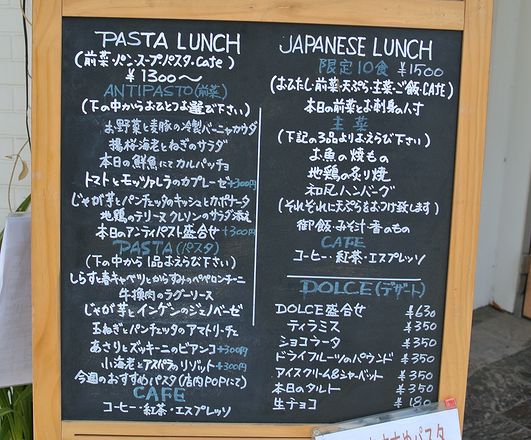 PASTA LUNCH
(前菜・パン・スープ・パスタ・Cafe)
¥1300〜
ANTIPASTO(前菜)
(下の中からおひとつお選び下さい)
お野菜と麦豚の冷製バーニャカウダ
揚桜海老とねぎのサラダ
本日の鮮魚にてカルパッチョ
トマトとモッツァレラのカプレーゼ+300円
じゃが芋とパンチェッタのキッシュとカポナータ
地鶏のテリーヌ クレソンのサラダ添え
本日のアンティパスト盛合せ+300円
PASTA(パスタ)
(下の中から1品お選び下さい)
しらすと春キャベツとからすみのペペロンチーニ
牛挽肉のラグーソース
じゃが芋とインゲンのジェノベーゼ
玉ねぎとパンチェッタのアマトリーチェ
あさりとズッキーニのビアンコ+300円
小海老とアスパラのリゾット+300円
今週のおすすめパスタ(店内POPにて)
CAFE
コーヒー・紅茶・エスプレッソ
JAPANESE LUNCH
限定10食 ¥1500
(おひたし・前菜・天ぷら・主菜・ご飯・CAFE)
本日の前菜とお刺身の八寸
主菜
(下記の3品よりおえらび下さい)
お魚の焼もの
地鶏の炙り焼
和風ハンバーグ
(それぞれに天ぷらをおつけ致します)
御飯・みそ汁・香のもの
CAFE
コーヒー・紅茶・エスプレッソ
DOLCE(デザート)
DOLCE盛合せ ¥630
ティラミス ¥350
ショコラータ ¥350
ドライフルーツのパウンド ¥350
アイスクリーム&シャーベット ¥350
本日のタルト ¥350
生チョコ ¥180
パスタ